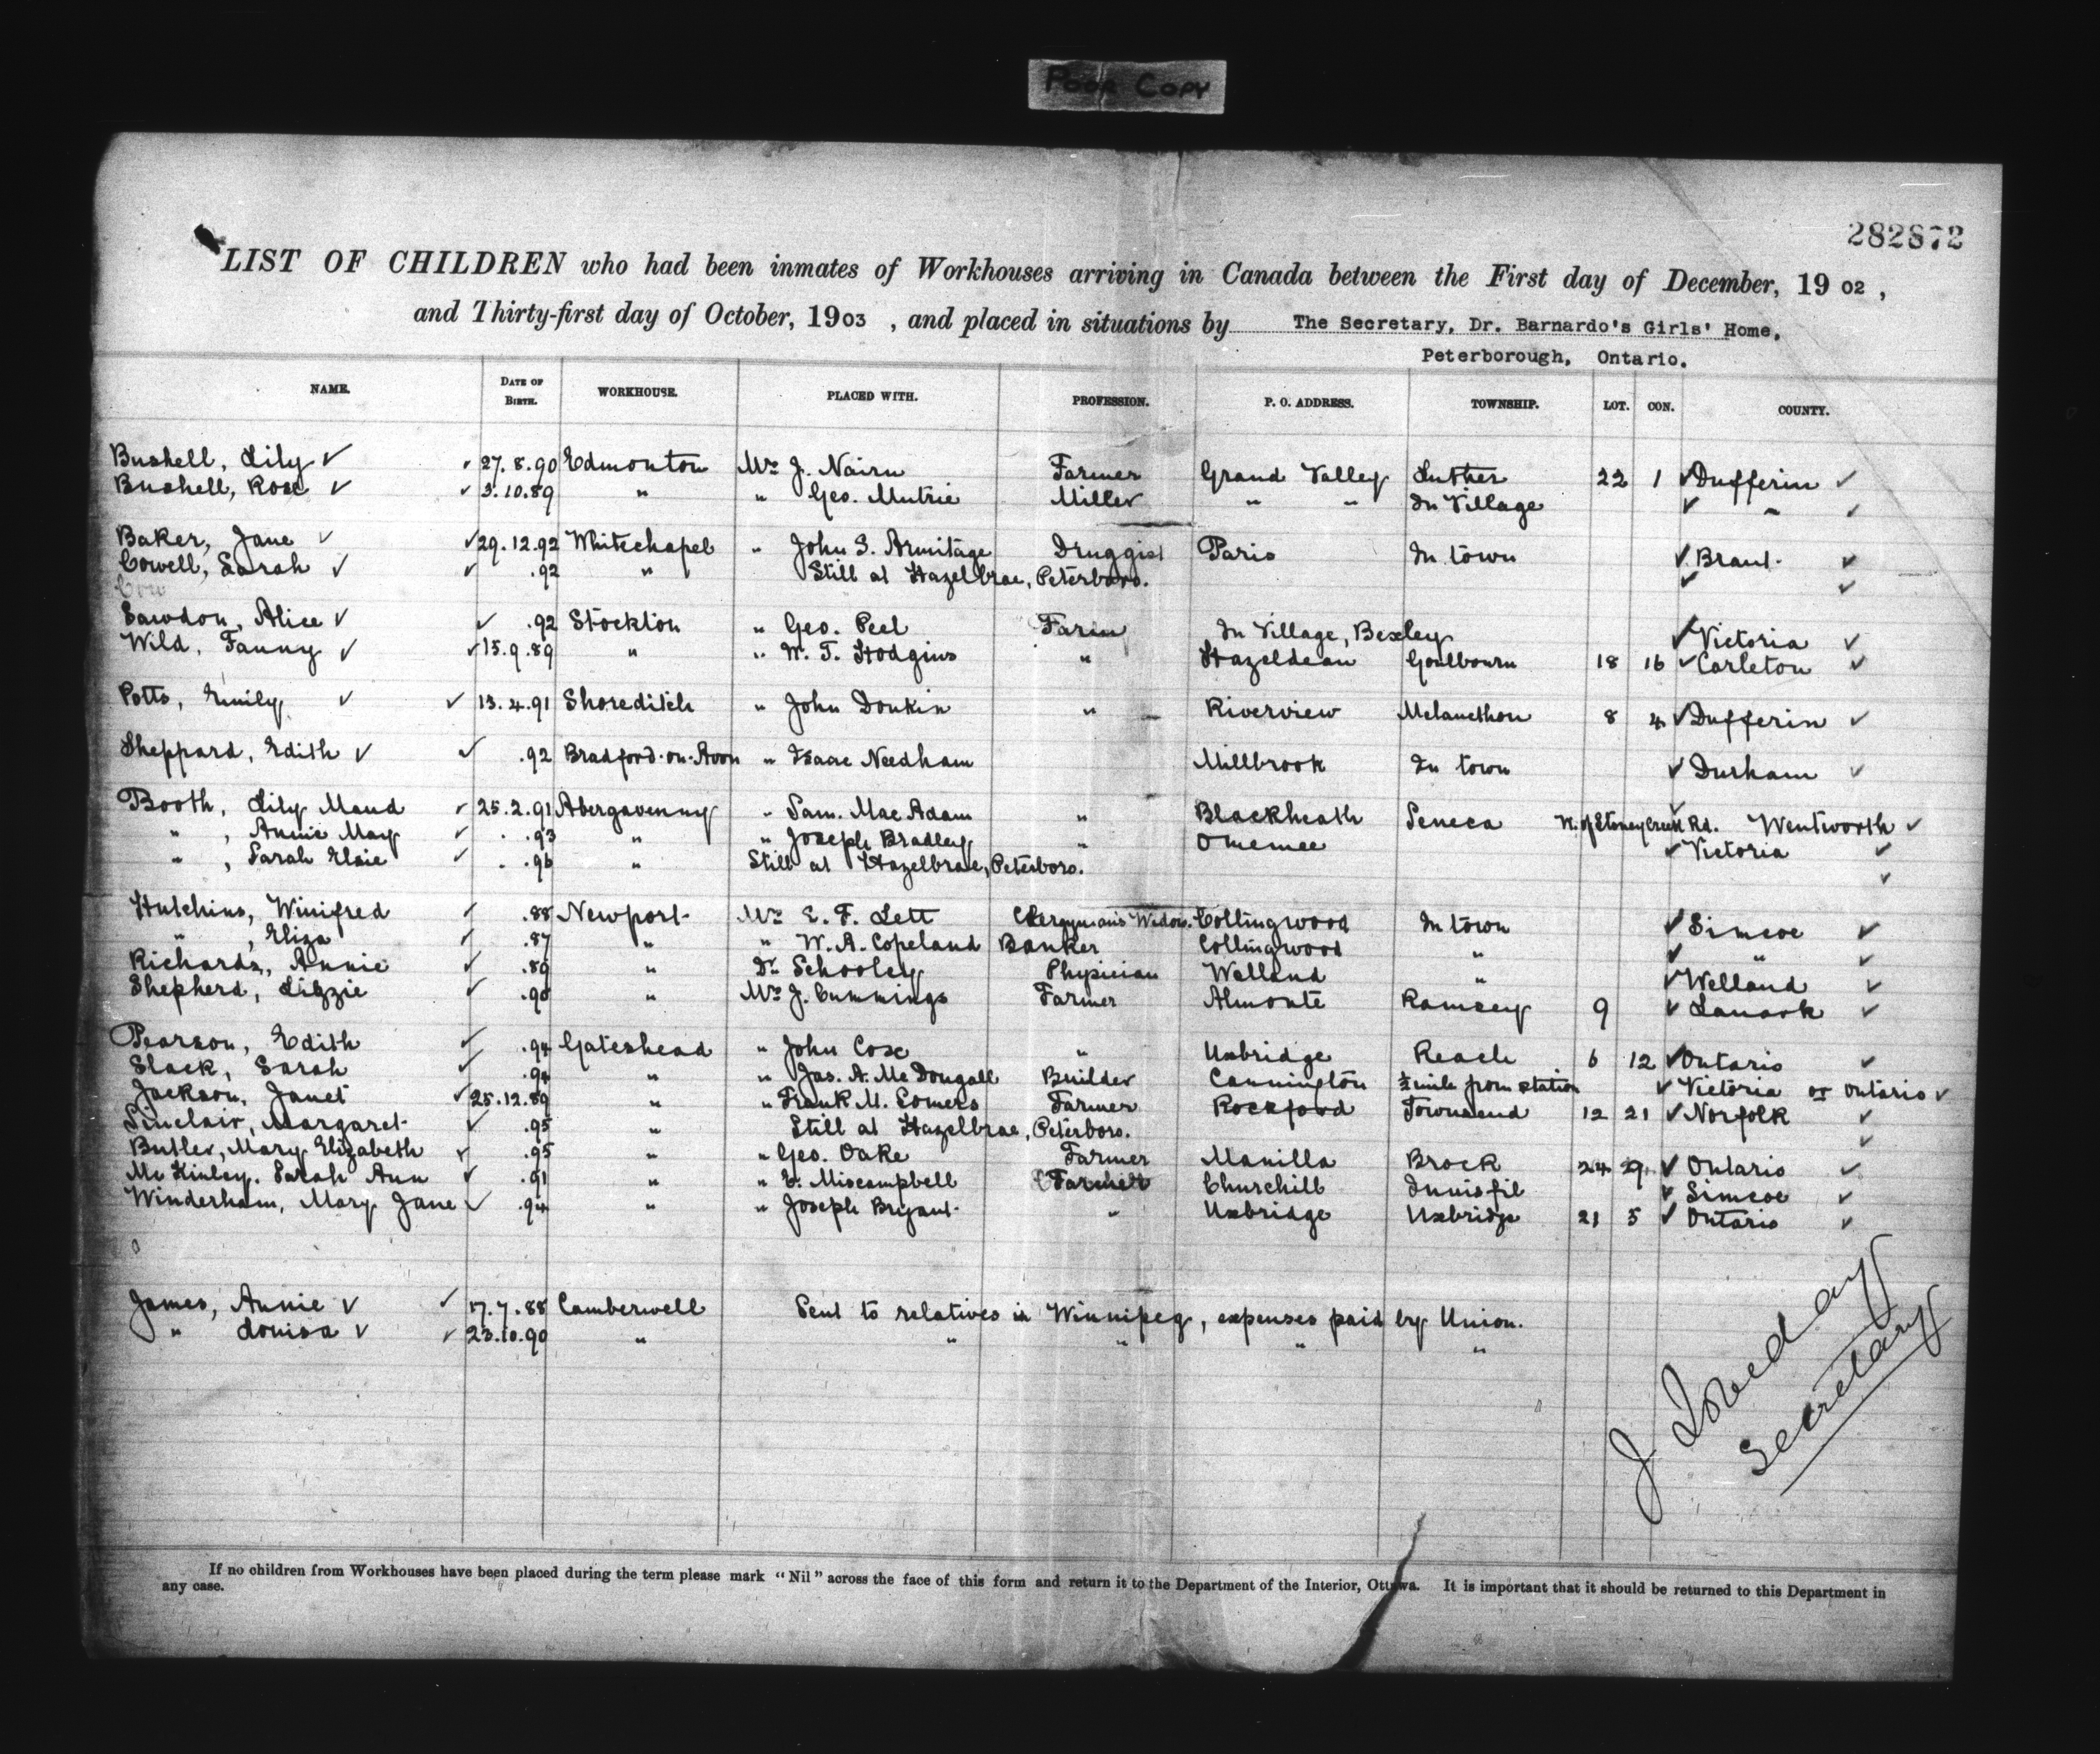 POOR COPY
282872
LIST OF CHILDREN who had been inmates of Workhouses arriving in Canada between the First day of December, 19 02 ,
and Thirty-first day of October, 1903 , and placed in situations by The Secretary, Dr. Barnardo's Girls' Home,
Peterborough, Ontario.
NAME. DATE OF BIRTH. WORKHOUSE. PLACED WITH. PROFESSION. P. O. ADDRESS. TOWNSHIP. LOT. CON. COUNTY.
Bushell, Lily ✓ ✓ 27.8.90 Edmonton Mr. J. Nairn Farmer Grand Valley Luther 22 1 ✓ Dufferin ✓
Bushell, Rose ✓ ✓ 3.10.89 " " Geo. Mutrie Miller " " In Village ✓ " ✓
Baker, Jane ✓ ✓ 29.12.92 Whitechapel " John S. Armitage Druggist Paris In town ✓ Brant. ✓
Cowell, Sarah ✓ ✓ .92 " Still at Hazelbrae, Peterboro. ✓ ✓
Cow
Sawdon, Alice ✓ ✓ .92 Stockton " Geo. Peel Farm In Village, Bexley ✓ Victoria ✓
Wild, Fanny ✓ ✓ 15.9.89 " " W. T. Hodgins " Hazeldean Goulbourn 18 16 ✓ Carleton ✓
Potts, Emily ✓ ✓ 13.4.91 Shoreditch " John Donkin " Riverview Melancthon 8 4 ✓ Dufferin ✓
Sheppard, Edith ✓ ✓ .92 Bradford-on-Avon " Isaac Needham Millbrook In town ✓ Durham ✓
Booth, Lily Maud ✓ 25.2.91 Abergavenny " Sam. Mac Adam " Blackheath Seneca N. of Stoney Creek Rd. ✓ Wentworth ✓
" , Annie May ✓ .93 " " Joseph Bradley " Omemee ✓ Victoria ✓
" , Sarah Elsie ✓ .96 " Still at Hazelbrae, Peterboro. ✓
Hutchins, Winifred ✓ .88 Newport Mrs. E. F. Lett Clergyman's Widow. Collingwood In town ✓ Simcoe ✓
" , Eliza ✓ .87 " " W. A. Copeland Banker Collingwood " ✓ " ✓
Richards, Annie ✓ .89 " Dr. Schooley Physician Welland " ✓ Welland ✓
Shepherd, Lizzie ✓ .90 " Mr. J. Cummings Farmer Almonte Ramsey 9 ✓ Lanark ✓
Pearson, Edith ✓ .94 Gateshead " John Cox " Uxbridge Reach 6 12 ✓ Ontario ✓
Slack, Sarah ✓ .94 " " Jas. A. Mc Dougall Builder Cannington ½ mile from station ✓ Victoria or Ontario ✓
Jackson, Janet ✓ 25.12.89 " " Frank M. Somers Farmer Rockford Townsend 12 21 ✓ Norfolk ✓
Sinclair, Margaret ✓ .95 " Still at Hazelbrae, Peterboro. ✓
Butler, Mary Elizabeth ✓ .95 " " Geo. Oake Farmer Manilla Brock 24 ✓ Ontario ✓
Mc Kinley, Sarah Ann ✓ .91 " " Miscampbell Farmer Churchill Innisfil ✓ Simcoe ✓
Winderham, Mary Jane ✓ .94 " " Joseph Bryant " Uxbridge Uxbridge 21 5 ✓ Ontario ✓
James, Annie ✓ ✓ 17.7.88 Camberwell Sent to relatives in Winnipeg, expenses paid by Union.
" Louisa ✓ ✓ 23.10.90 " " " " "
J. Loveday
Secretary
If no children from Workhouses have been placed during the term please mark "Nil" across the face of this form and return it to the Department of the Interior, Ottawa. It is important that it should be returned to this Department in
any case.